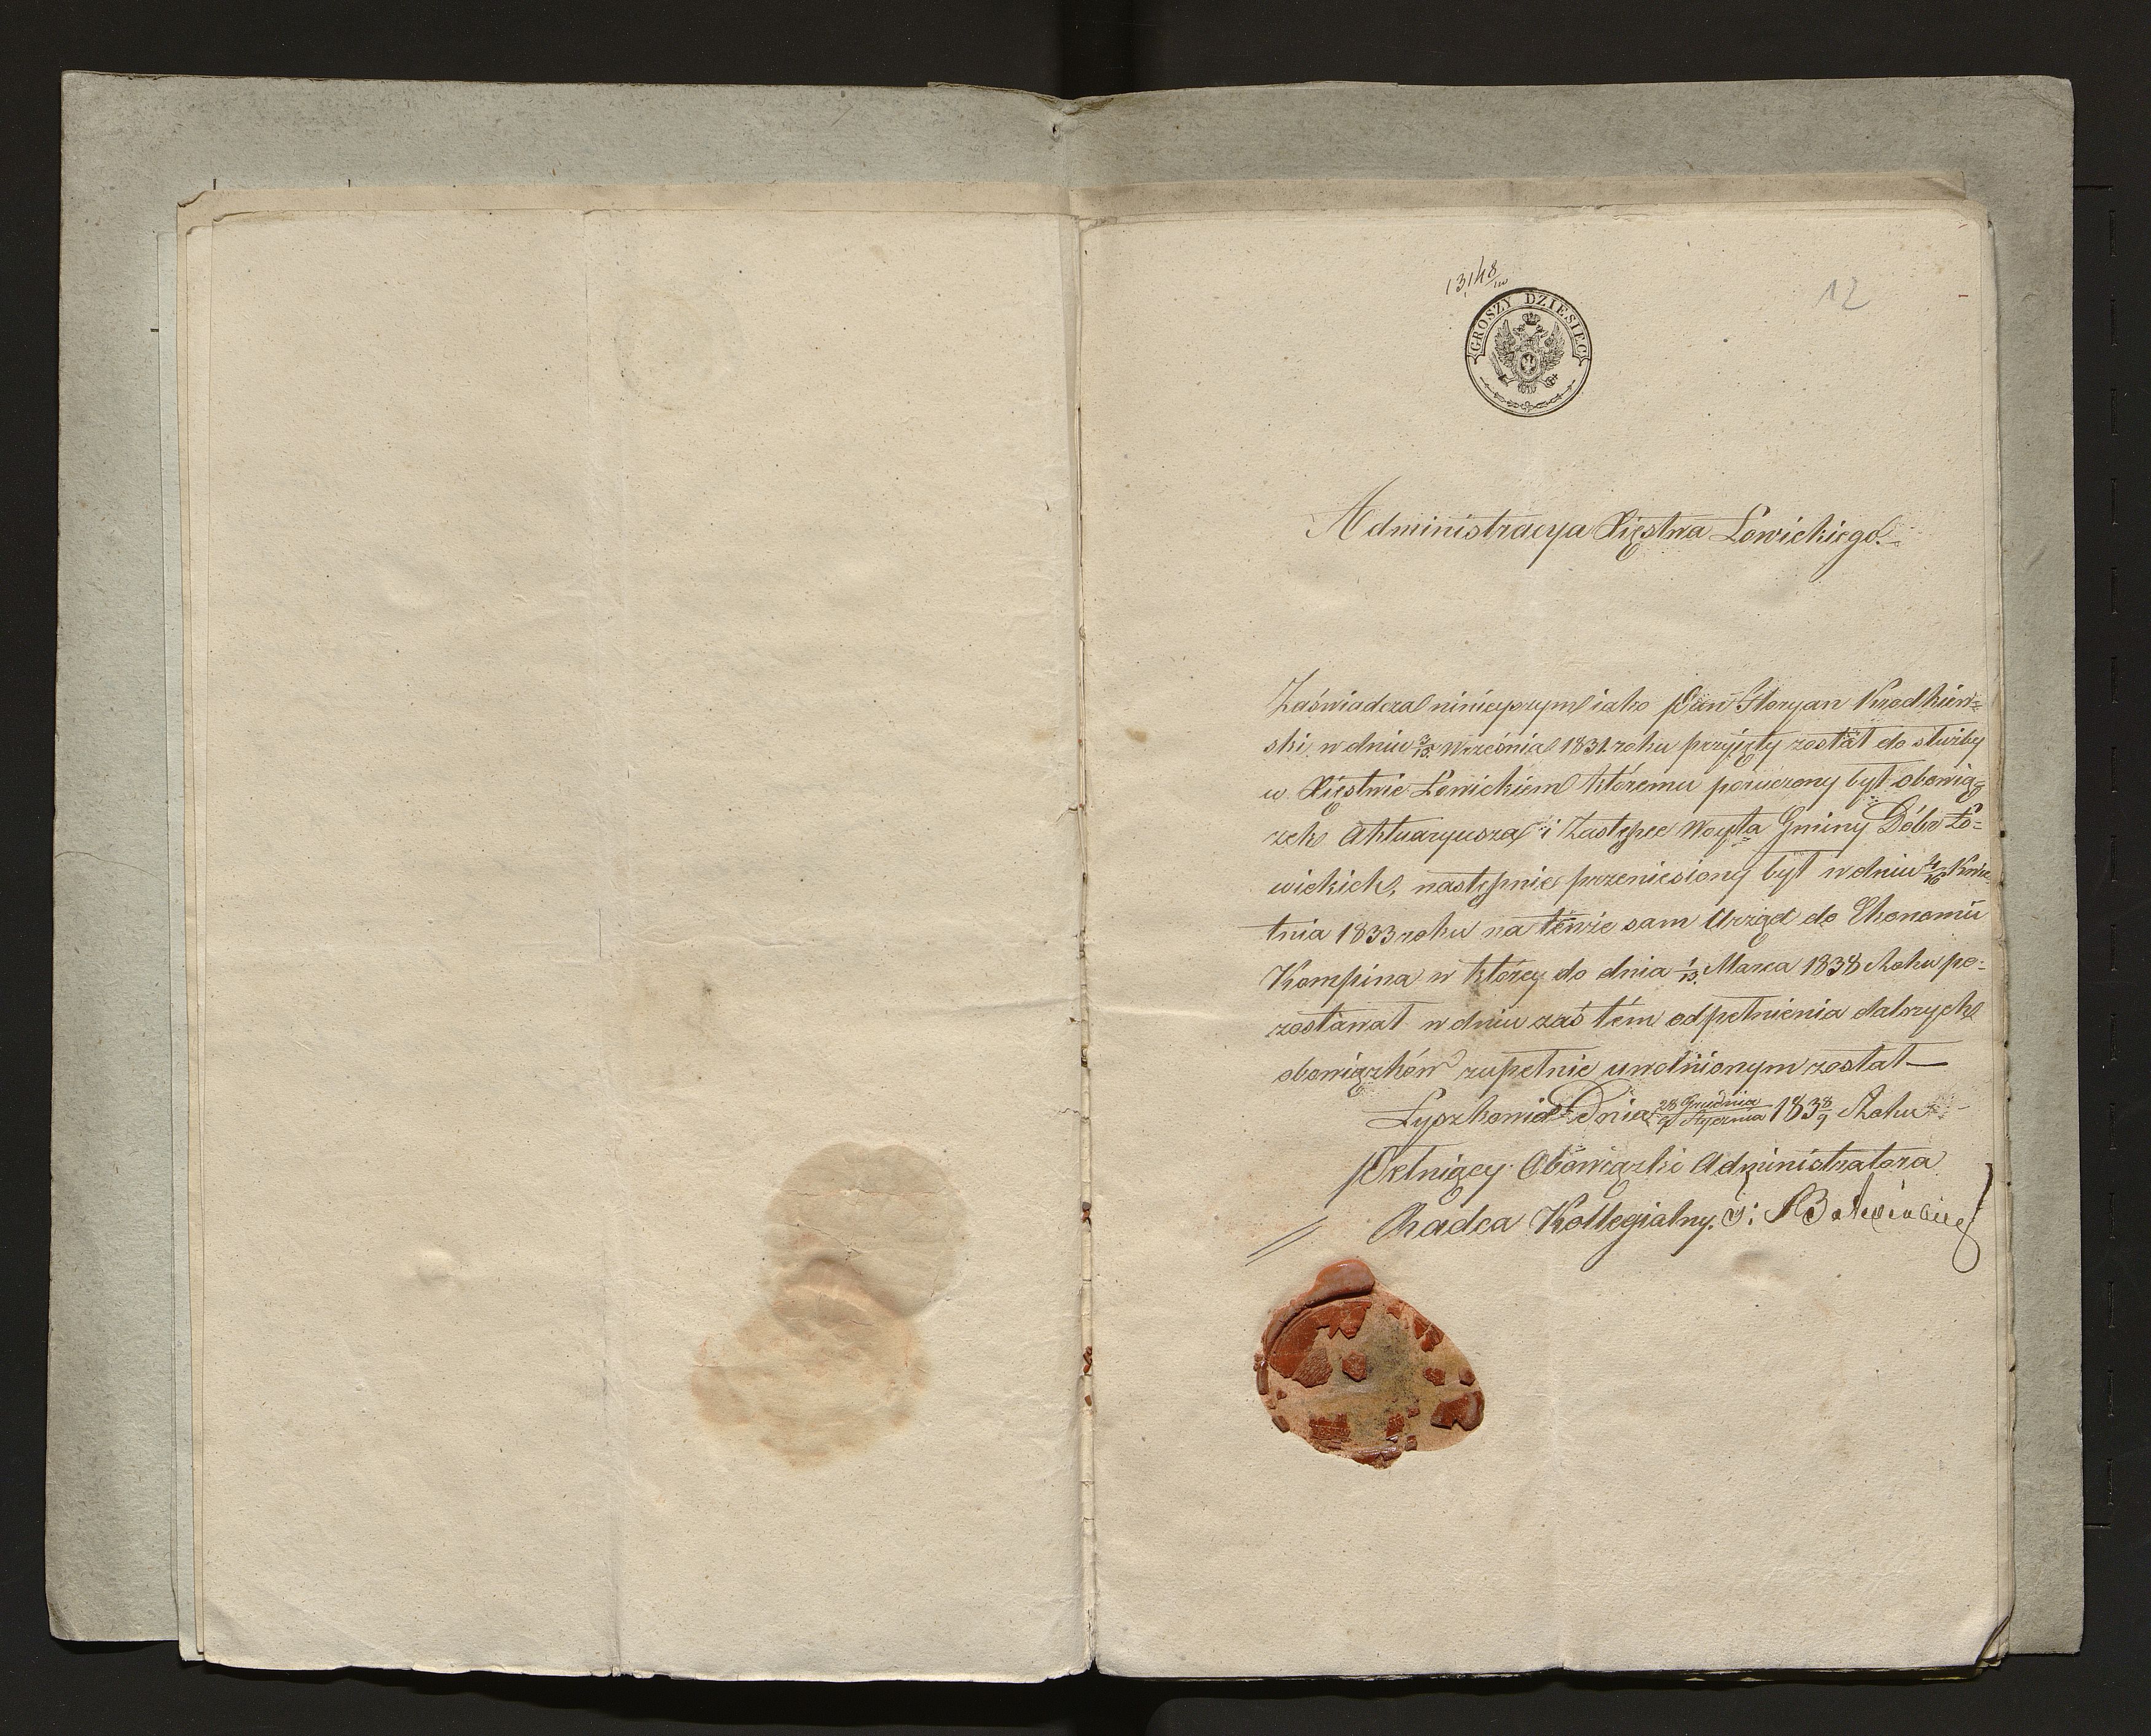 13148
12
GROSZY DZIESIĘĆ
Administracya Xięstwa Łowickiego.
Zaświadcza ninieyszym iako Pan Floryan Kredkiew-
ski, w dniu 3/15 Września 1831 roku przyięty został do służby
w Xięstwie Łowickiem któremu poruczony był obowią-
zek Aktuaryusza i Zastępce Woyta Gminy Dóbr Ło-
wickich, następnie przeniesiony był w dniu 4/16 Kwie-
tnia 1833 roku na tenże sam Urząd do Ekonomii
Kompina w którey do dnia 1/13 Marca 1838 Roku po-
zostawał w dniu zaś tém od pełnienia dalszych
obowiązków zupełnie uwolnionym został —
Łyszkowice Dnia 28 Grudnia / 9 Stycznia 183 8/9 Roku
Pełniący Obowiązki Administratora
Radca Kollegialny.